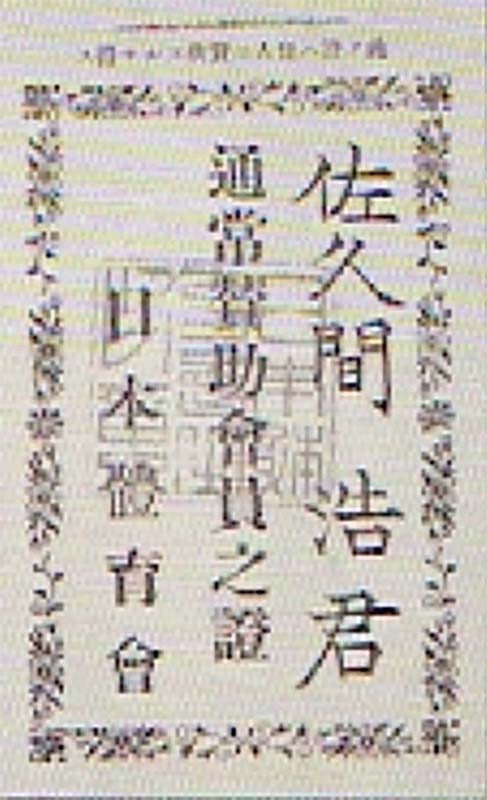 佐久間浩君
通常賛助會員之證
日本體育會